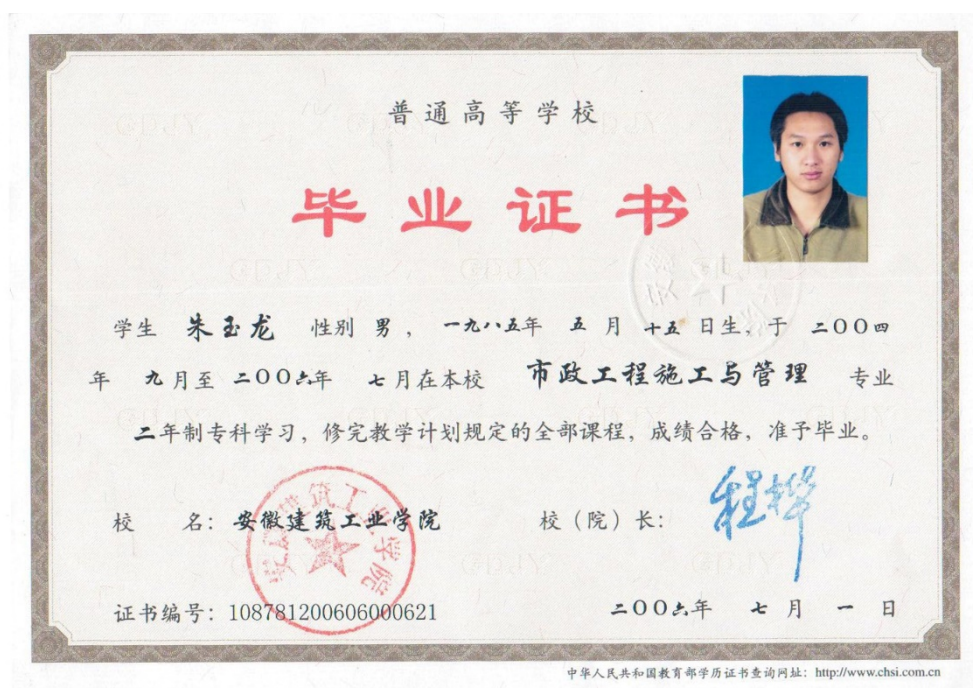 普通高等学校
毕业证书
学生 朱玉龙 性别 男，一九八五年 五 月 十五 日生，于 二〇〇四
年 九月至 二〇〇六年 七月在本校 市政工程施工与管理 专业
二年制专科学习，修完教学计划规定的全部课程，成绩合格，准予毕业。
校 名：安徽建筑工业学院 校（院）长：程桦
安徽建筑工业学院
证书编号：108781200606000621 二〇〇六年 七 月 一 日
中华人民共和国教育部学历证书查询网址：http://www.chsi.com.cn